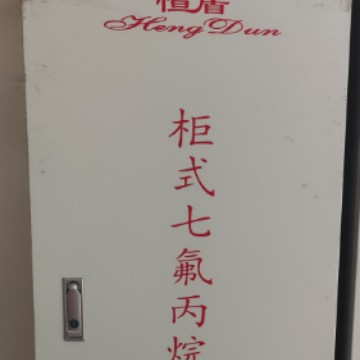 恒盾
Heng Dun
柜式七氟丙烷